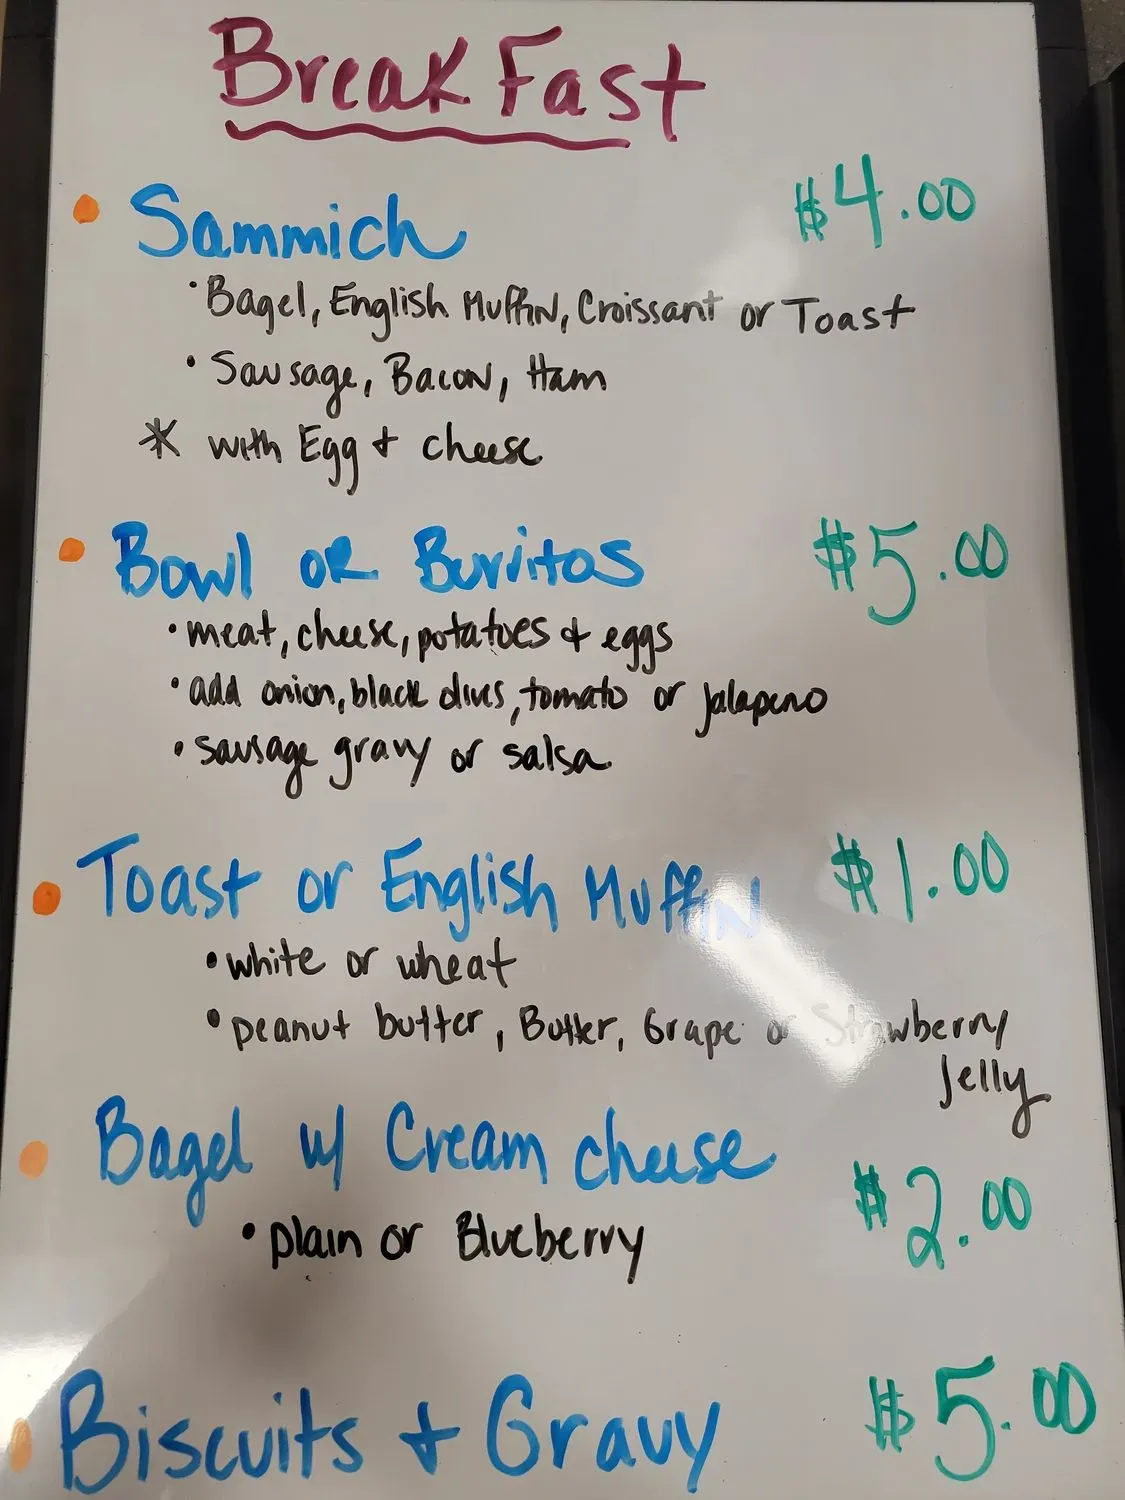 BreakFast
• Sammich $4.00
• Bagel, English Muffin, Croissant or Toast
• Sausage, Bacon, Ham
* with Egg + cheese
• Bowl or Burritos $5.00
• meat, cheese, potatoes & eggs
• add onion, black olives, tomato or jalapeno
• sausage gravy or salsa
• Toast or English Muffin $1.00
• white or wheat
• peanut butter, Butter, Grape or Strawberry
Jelly
• Bagel w/ Cream cheese $2.00
• plain or Blueberry
• Biscuits + Gravy $5.00